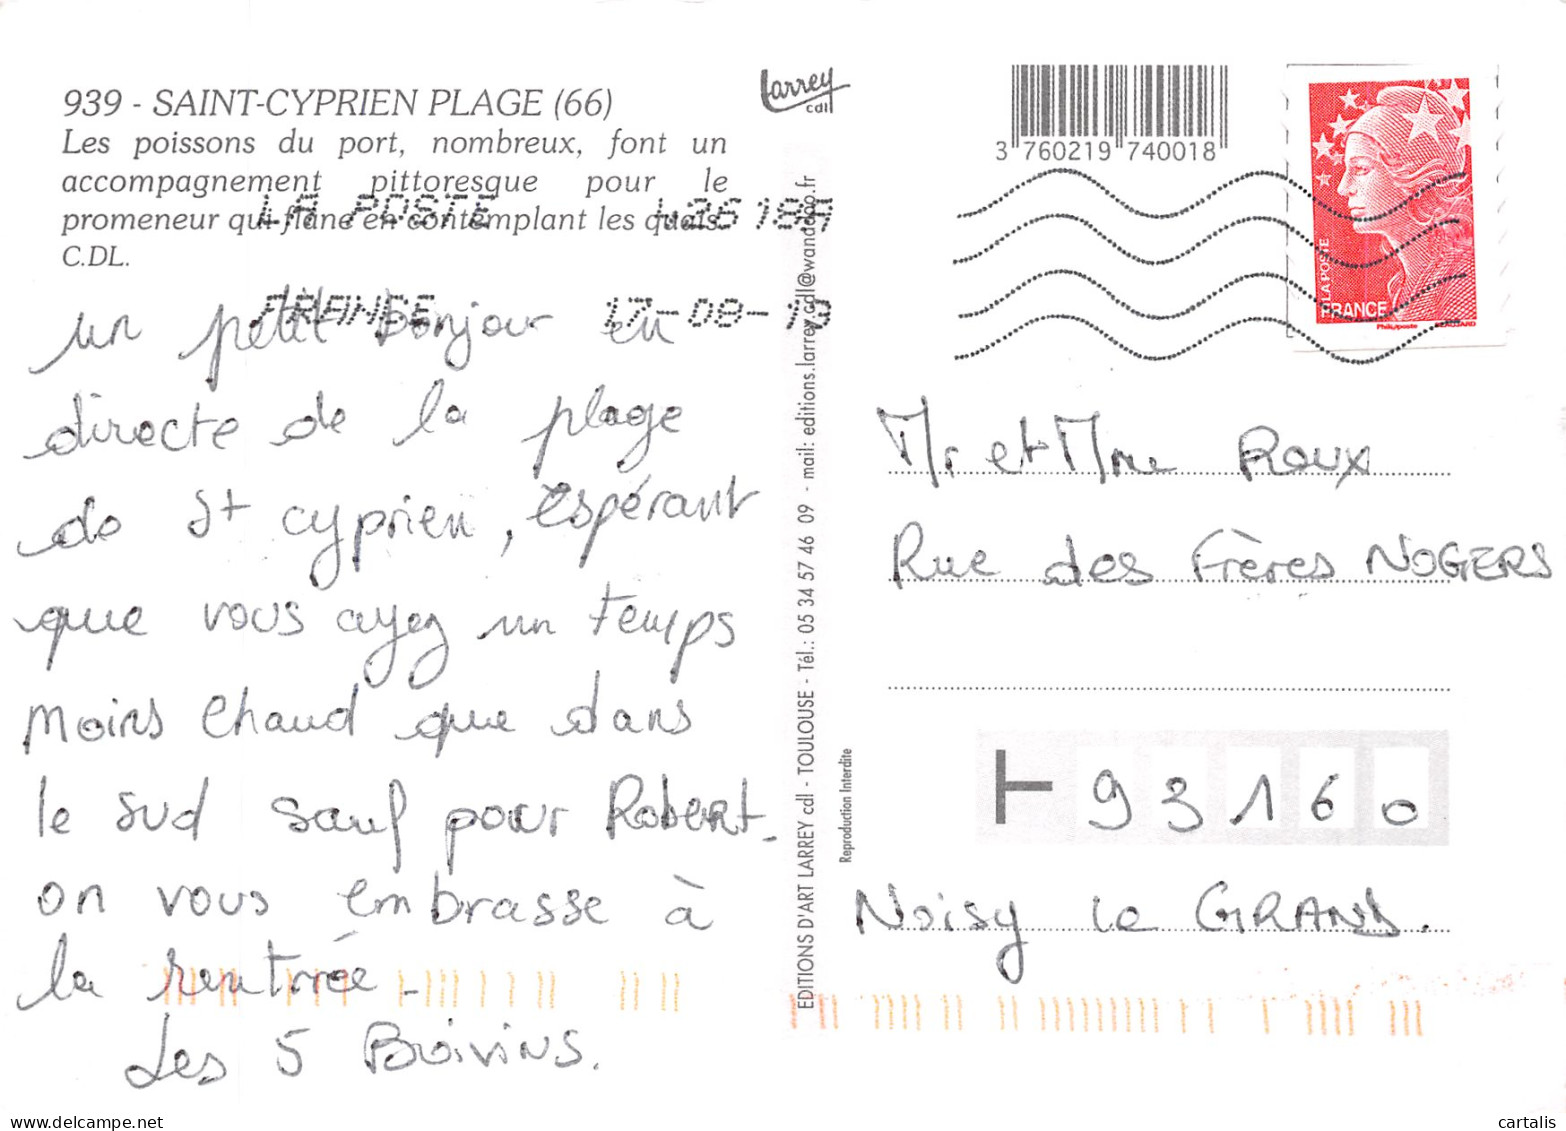 939 - SAINT-CYPRIEN PLAGE (66)
Les poissons du port, nombreux, font un
accompagnement pittoresque pour le
promeneur qui flâne en contemplant les quais.
C.DL.
Larrey
cdl
3 760219 740018
LA POSTE
FRANCE
17-08-10
LA POSTE
FRANCE
Phil@poste
un petit bonjour en
directe de la plage
de St cyprien, espérant
que vous ayez un temps
moins chaud que dans
le sud sauf pour Robert_
on vous embrasse à
la rentrée_
Les 5 Boivins.
EDITIONS D'ART LARREY cdl - TOULOUSE - Tél.: 05 34 57 46 09 - mail: editions.larrey.cdl@wanadoo.fr
Reproduction Interdite
Mr et Mme Roux
Rue des Frères NOGERS
93160
Noisy le GRAND.
cartalis